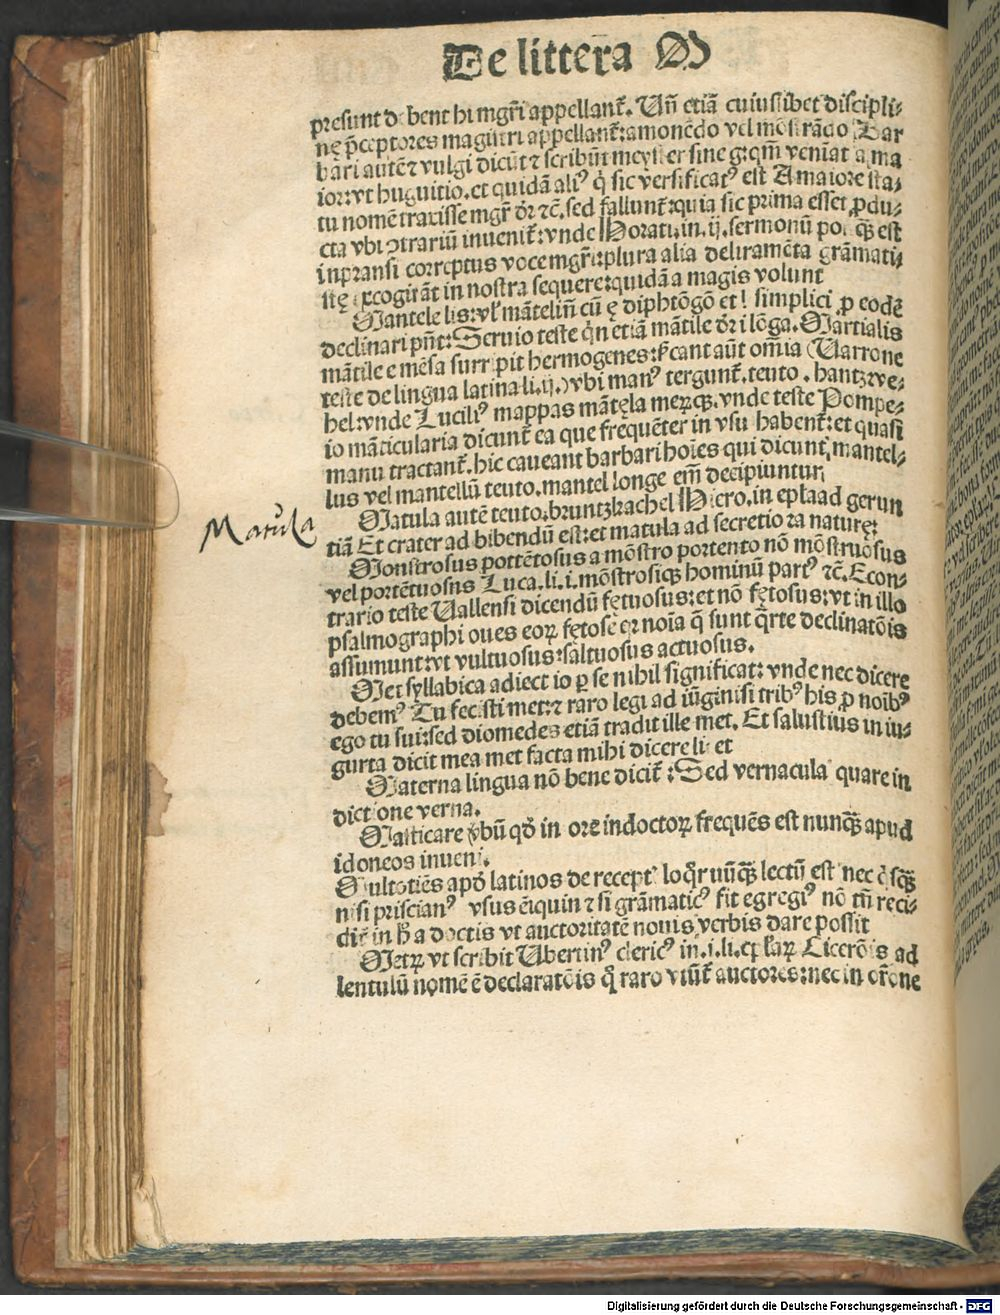 De littera M
presunt debent hi mgr̃i appellant̃. Uñ etiã cuiuslibet discipli-
nę p̃ceptores magistri appellant̃: amonẽdo vel mõstrãdo Bar
bari autẽ ⁊ vulgi dicũt ⁊ scribũt meyster sine g: qm̃ veniat a ma
ior: vt huguitio. et quidã aliꝰ q̇ sic versificatꝰ est A maiore sta-
tu nomẽ traxisse mgr̃ dr̃ ⁊c̃. sed fallunt̃: quia sic prima esset ꝓdu-
cta vbi ↄtrariũ inuenit̃: vnde Horatiꝰ in. ij. sermonũ
inpransi correptus voce mgr̃i: plura alia deliramẽta grãmati-
cę excogitãt in nostra sequere: quidã a magis volunt
Mantele lis: vl̓ mãteliũ cũ ę diphtõgõ et l simplici ꝓ eodẽ
declinari pñt: Seruio teste q̃n etiã mãtile dr̃ i lõga. Martialis
mãtile e mẽsa surripit hermogenes: aũt om̃ia (Uarrone
teste de lingua latina li. ij.) vbi manꝰ tergunt̃. teuto. hantzwe-
hel: vnde Luciliꝰ mappas mãtęla merꝗ. vnde teste Pompe-
io mãticularia dicunt̃ ea que frequẽter in vsu habent̃: et quasi
manu tractant̃. hic caueant barbari hoĩes qui dicunt mantel-
lus vel mantellũ teuto. mantel longe em̃ decipiuntur
Matula
Matula autẽ teuto. bruntzkachel Hiero. in epl̃a ad gerun
tiã Et crater ad bibendũ est: et matula ad secretiora naturę:
Monstrosus portẽtosus a mõstro portento nõ mõstruosus
vel portẽtuosus Luca. li. i. mõstrosiꝗ hominũ partꝰ ⁊c̃. Econ-
trario teste Uallensi dicendũ fętuosus: et nõ fętosus: vt in illo
psalmographi oues eoꝝ fętose qꝛ noĩa q̃ sunt q̃rte declinatõis
assumunt: vt vultuosus: saltuosus actuosus.
Met syllabica adiectio ꝑ se nihil significat: vnde nec dicere
debemꝰ Tu fecisti met: ⁊ raro legi ad iũgi nisi tribꝰ his ꝓ noĩbꝰ
ego tu sui: sed diomedes etiã tradit ille met. Et salustius in iu-
gurta dicit mea met facta mihi dicere licet
Materna lingua nõ bene dicit̃: Sed vernacula quare in
dictione verna.
Masticare ꝟbũ qđ in ore indoctoꝝ frequẽs est nunꝗ̃ apud
idoneos inueni.
Multotiẽs apđ latinos de receptꝰ loq̃r nũꝗ̃ lectũ est nec
nisi priscianꝰ vsus ẽ iquin ⁊ si grãmaticꝰ sit egregiꝰ nõ tñ reci-
diẽ in a doctis vt auctoritatẽ nouis verbis dare possit
Metꝝ vt scribit Ubertinꝰ clericꝰ in. i. li. ep̃l̃aꝝ Cicerõis ad
lentulũ nomẽ ẽ declaratõis q̃ raro vtũt̃ auctores: nec in or̃one
Digitalisierung gefördert durch die Deutsche Forschungsgemeinschaft - DFG